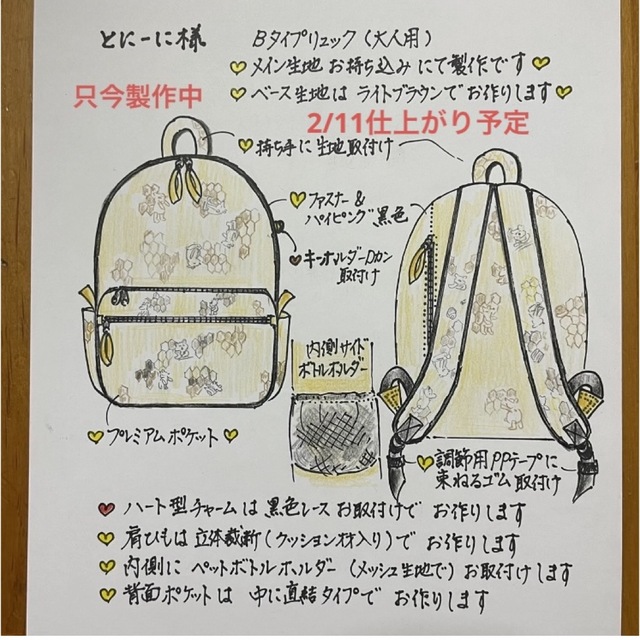 とにーに様
Bタイプリュック(大人用)
メイン生地お持ち込みにて製作です
只今製作中
ベース生地はライトブラウンでお作りします
2/11仕上がり予定
持ち手に生地取付け
ファスナー&
パイピング黒色
キーホルダーDカン
取付け
内側サイド
ボトルホルダー
プレミアムポケット
調節用PPテープに
束ねるゴム取付け
ハート型チャームは黒色レースお取付けでお作りします
肩ひもは立体裁断(クッション材入り)でお作りします
内側にペットボトルホルダー(メッシュ生地で)お取付けします
背面ポケットは中に直結タイプでお作りします